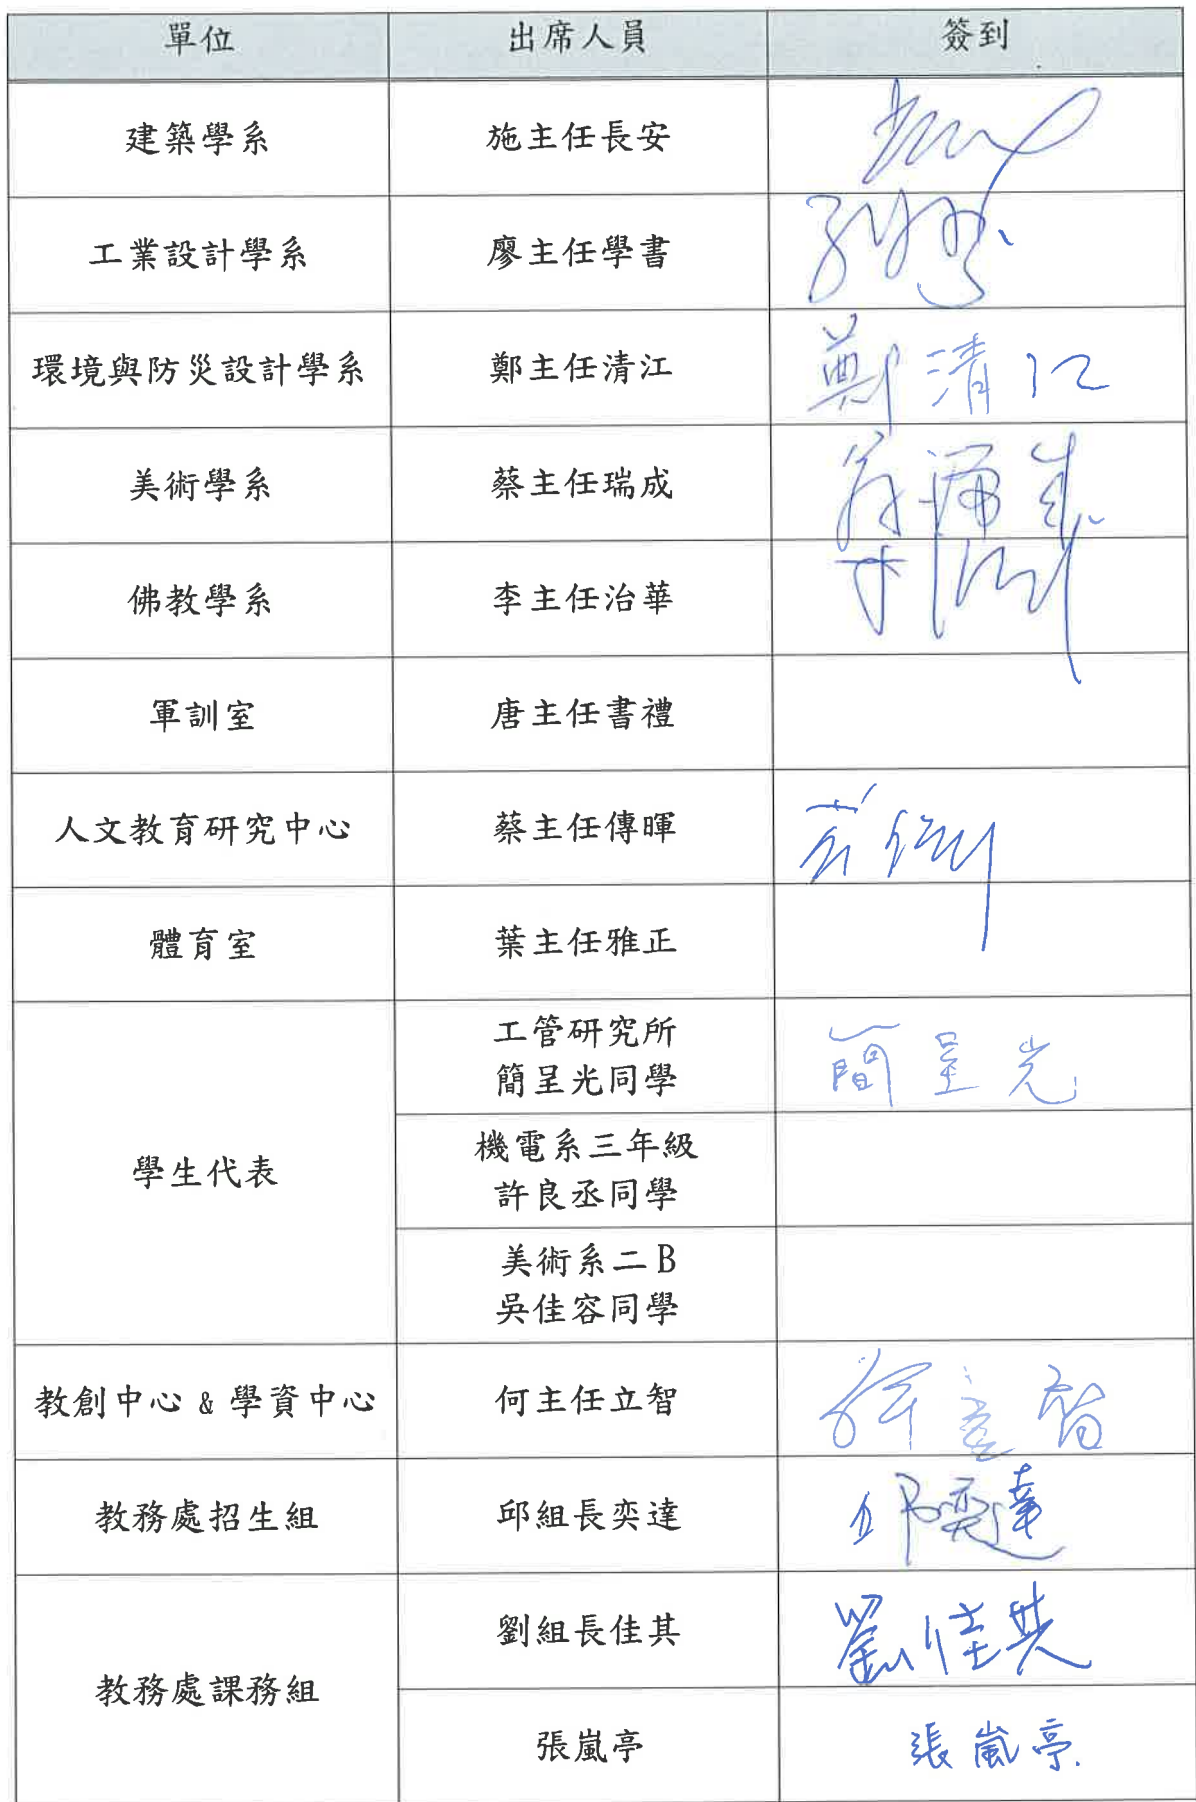 單位 出席人員 簽到
建築學系 施主任長安
工業設計學系 廖主任學書
環境與防災設計學系 鄭主任清江 鄭清江
美術學系 蔡主任瑞成 蔡瑞成
佛教學系 李主任治華
軍訓室 唐主任書禮
人文教育研究中心 蔡主任傳暉
體育室 葉主任雅正
學生代表
工管研究所
簡呈光同學 簡呈光
機電系三年級
許良丞同學
美術系二 B
吳佳容同學
教創中心 & 學資中心 何主任立智
教務處招生組 邱組長奕達 邱奕達
教務處課務組
劉組長佳其 劉佳其
張嵐亭 張嵐亭